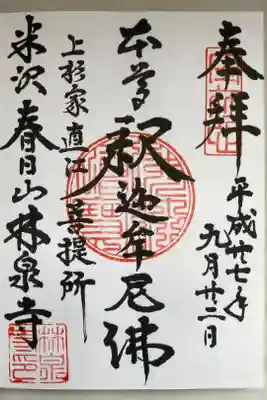 奉拝
平成廿七年
九月廿二日
本尊
釈迦牟尼佛
上杉家直江
菩提所
米沢
春日山林泉寺